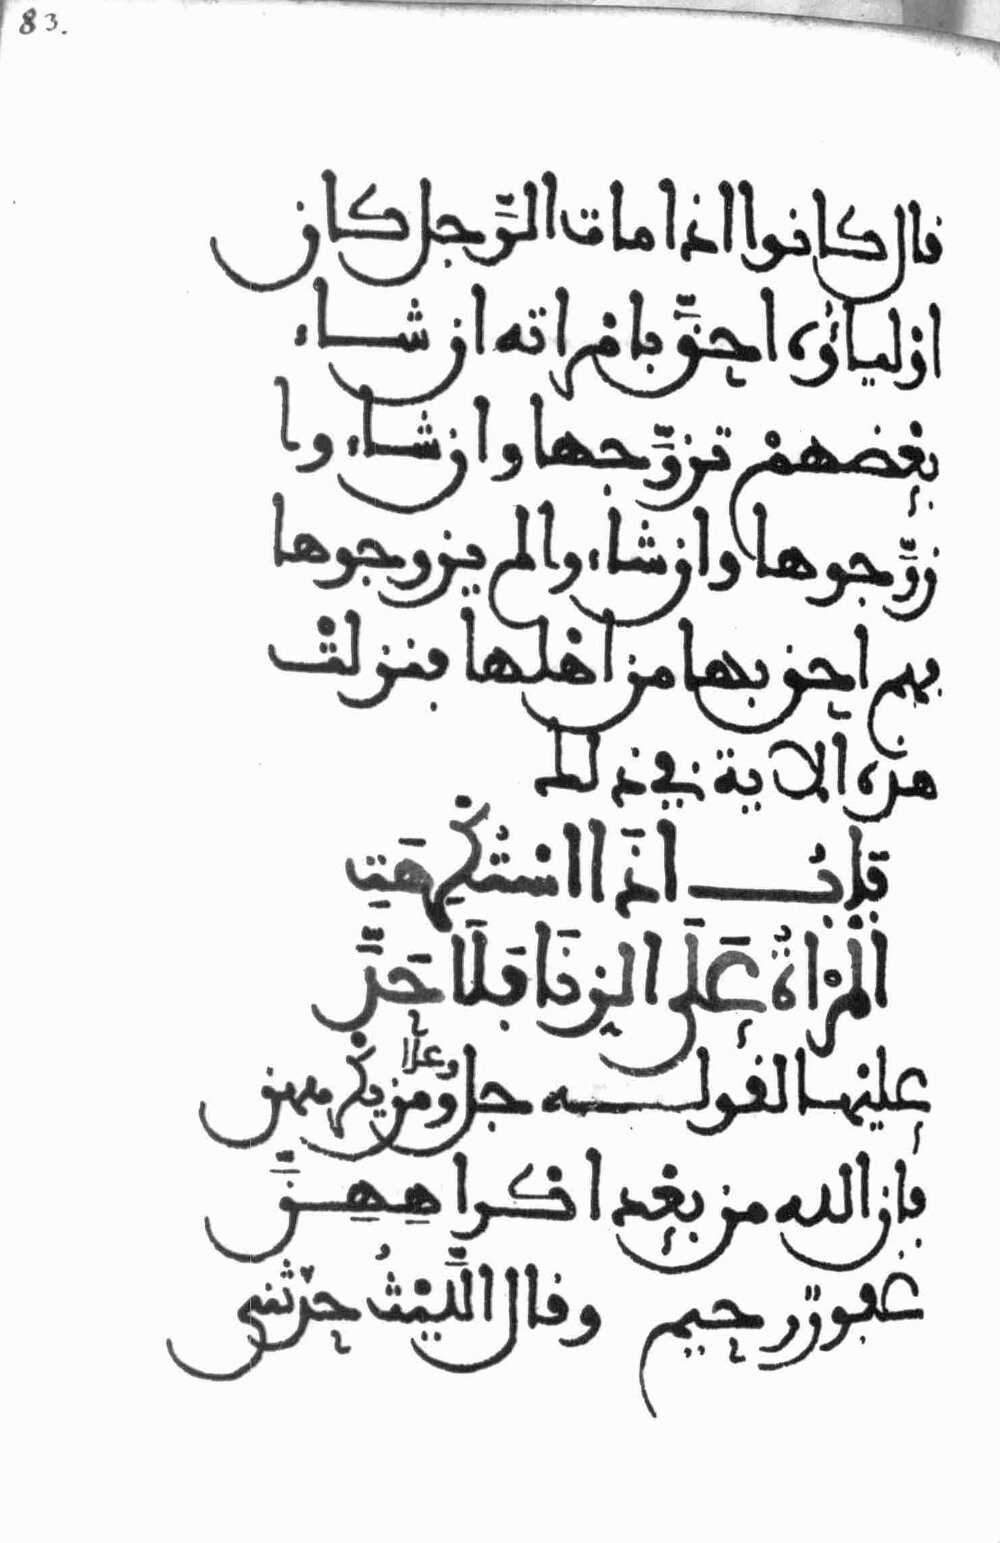 83.
قال كانوا اذا مات الرَّجل كان
اولياؤه احقَّ بامْراته ان شاء
بعْضهمْ تزوَّجها وان شاءوا
زوَّجوها وان شاءوا لم يزوجوها
فهم احق بها من اهْلها فنزلتْ
هذه الاية في ذلك
بَابُ اذَا اسْتُكْرِهَتِ
الْمَرْاةُ عَلَى الزِنَا فَلَا حَدَّ
عليْها لقوله جلّ وعلا ومن يكْرههن
فان الله من بعْد اكراهِهِنَّ
غفورٌ رحيم وقال اللَّيْثُ حدّثني